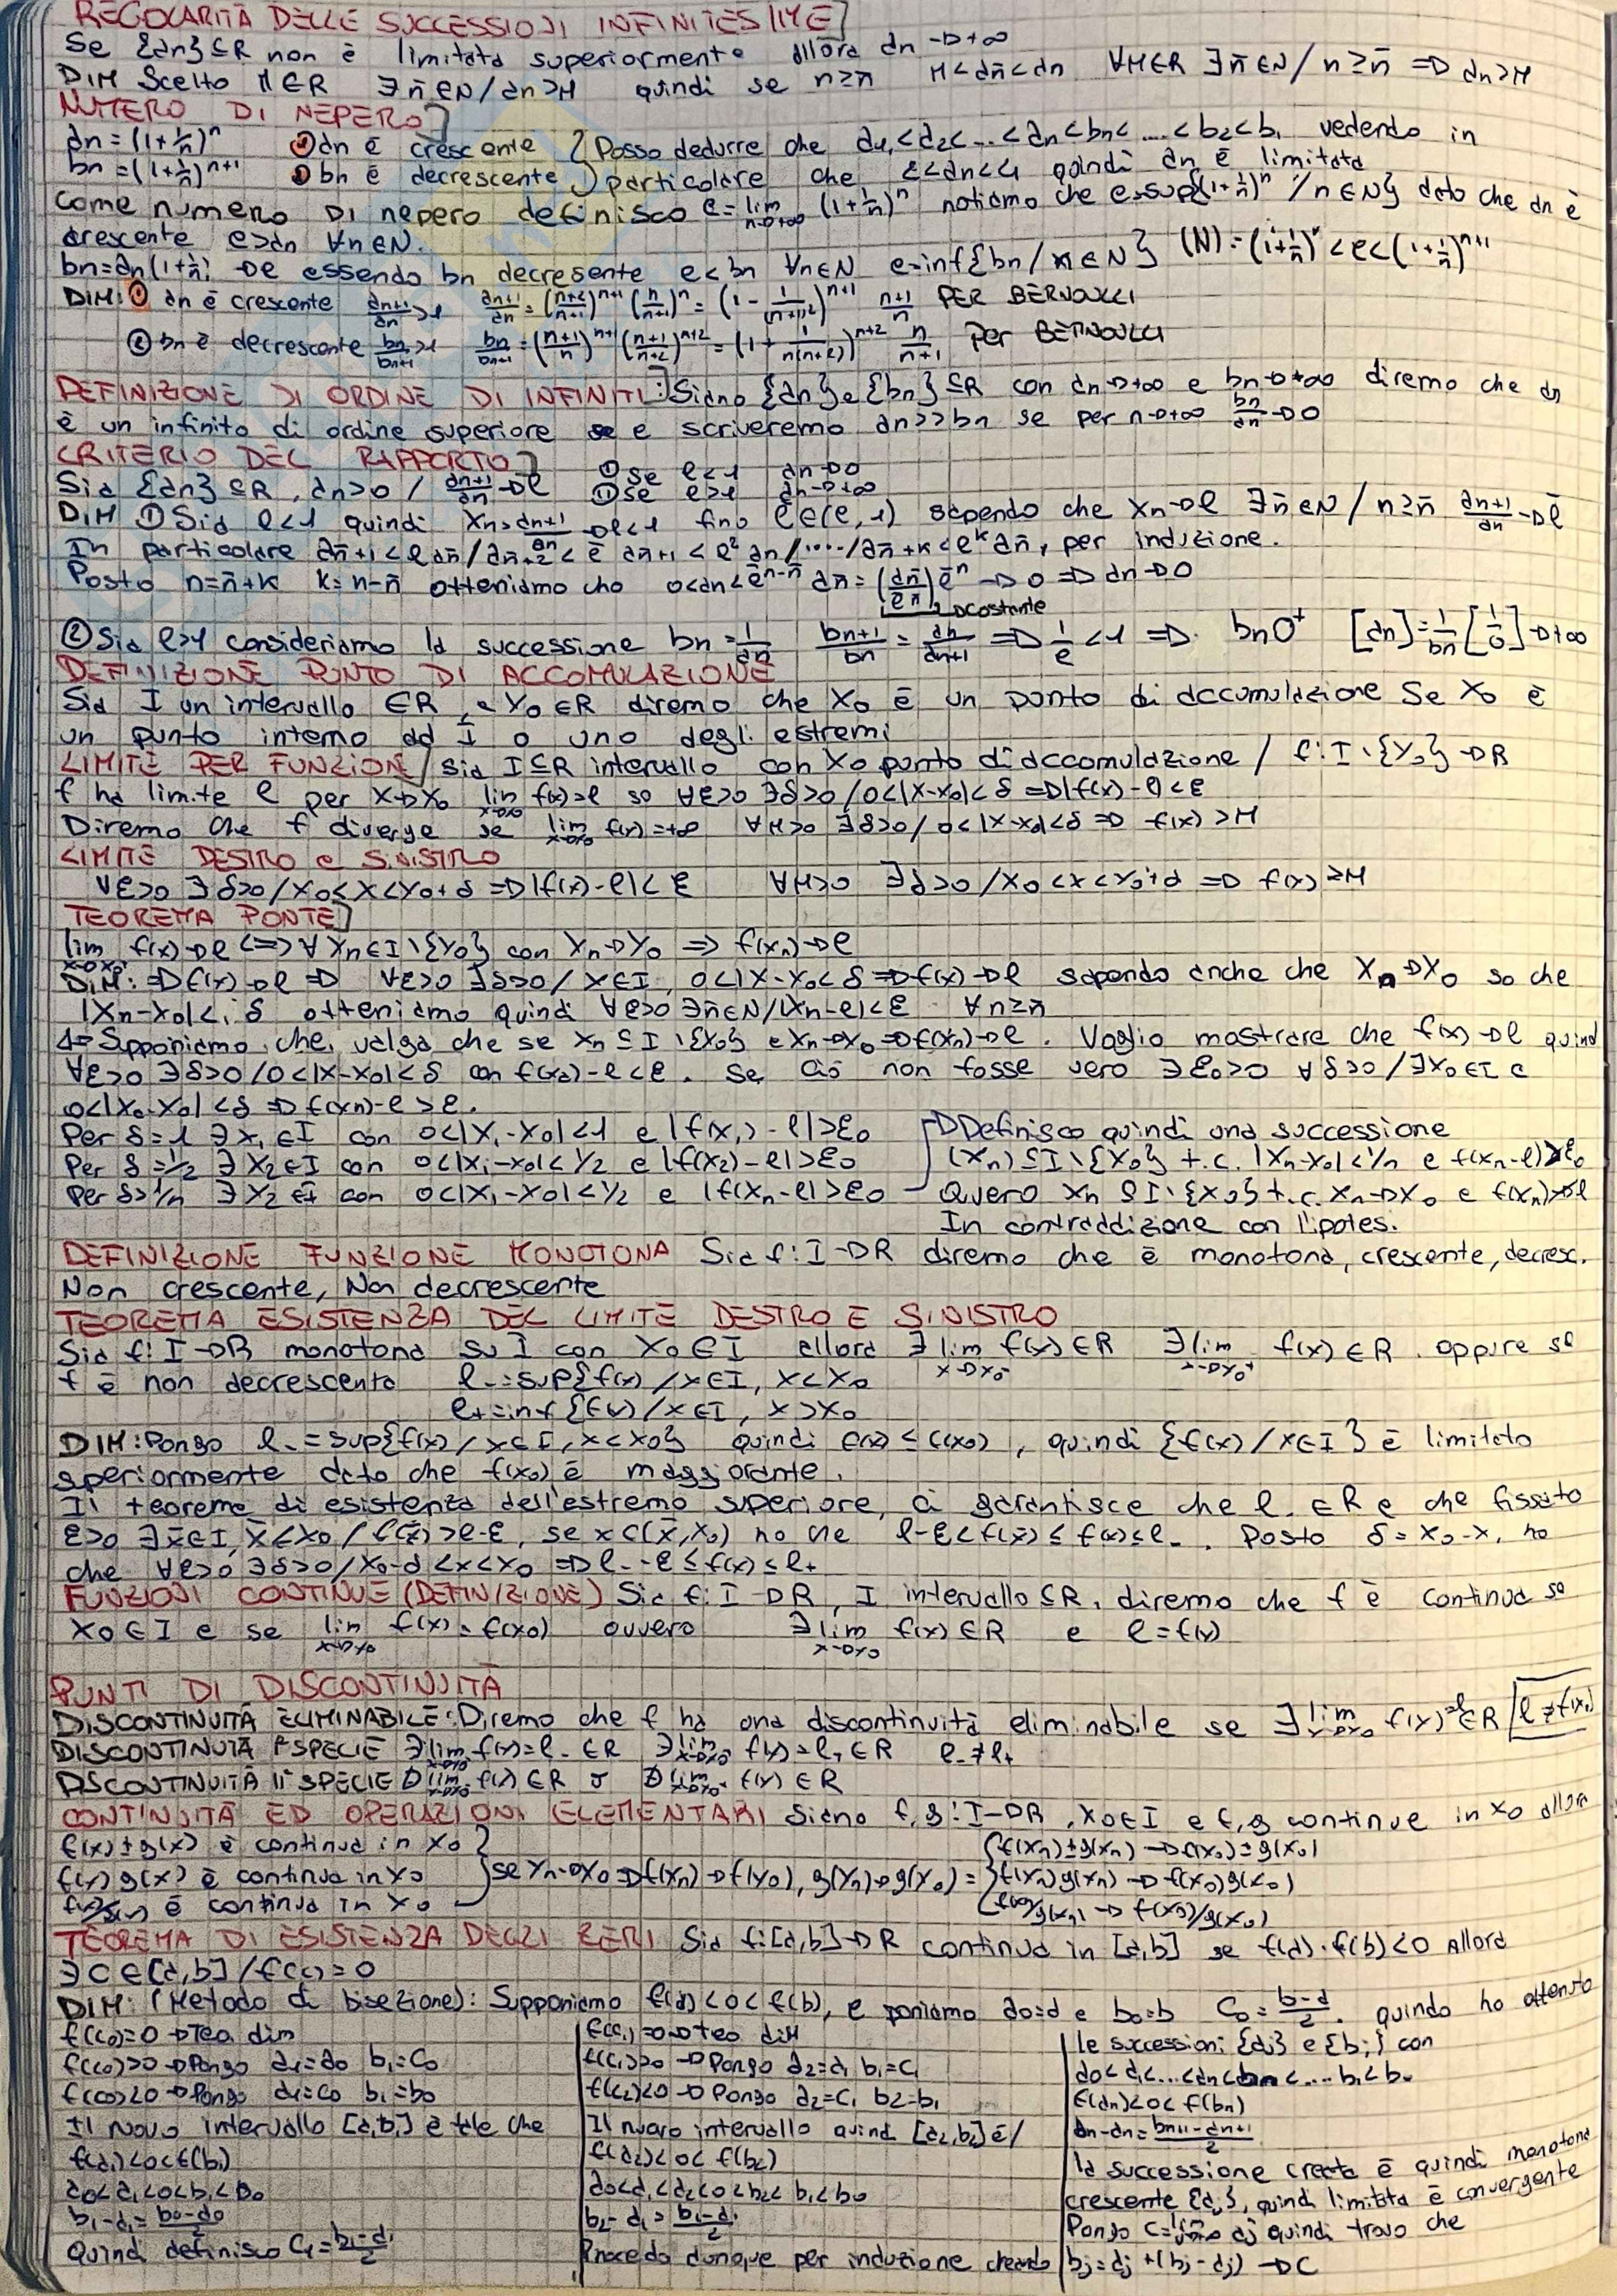 REGOLARITÀ DELLE SUCCESSIONI INFINITESIME]
Se {an}⊆R non è limitata superiormente allora an → +∞
DIM Scelto M∈R ∃n̄∈N/an>M quindi se n≥n̄ M<an̄<an ∀M∈R ∃n̄∈N/n≥n̄ ⇒ an>M
NUMERO DI NEPERO]
an=(1+1/n)^n ② an è crescente } Posso dedurre che a1<a2<...<an<bn<...<b2<b1 vedendo in
bn=(1+1/n)^n+1 ① bn è decrescente } particolare che 2<an<4 quindi an è limitata
Come numero DI nepero definisco e=lim n→+∞ (1+1/n)^n notiamo che e=sup{(1+1/n)^n /n∈N} dato che an è
crescente e>an ∀n∈N.
bn=an(1+1/n) → e essendo bn decresente e<bn ∀n∈N e=inf{bn/n∈N} (N)=(1+1/n)^n<e<(1+1/n)^n+1
DIM: ① an è crescente an+1/an>1 an+1/an=(n+2/n+1)^n+1 (n/n+1)^n=(1-1/(n+1)²)^n+1 n+1/n PER BERNOULLI
② bn è decrescente bn/bn+1>1 bn/bn+1=(n+1/n)^n+1(n+1/n+2)^n+2=(1+1/n(n+2))^n+2 n/n+1 per BERNOULLI
DEFINIZIONE DI ORDINE DI INFINITI:] Siano {an} e {bn}⊆R con an→+∞ e bn→+∞ diremo che an
è un infinito di ordine superiore se e scriveremo an>>bn se per n→+∞ bn/an→0
CRITERIO DEL RAPPORTO] ① se l<1 an→0
Sia {an}⊆R, an>0 / an+1/an→l ① se l>1 an→+∞
DIM ① Sia l<1 quindi xn=an+1/an→l<1 fino l̄∈(l,1) sapendo che Xn→l ∃n̄∈N/n≥n̄ an+1/an→l̄
In particolare an̄+1<l an̄/an̄+2<l̄ an̄+1<l² an/..../an̄+k<l^k an̄, per induzione.
Posto n=n̄+k k=n-n̄ otteniamo cho 0<an<l̄^n-n̄ an̄=(an̄/l^n̄) l̄^n →0 ⇒ an→0
→costante
② Sia l>1 consideriamo la successione bn=1/an bn+1/bn=an/an+1 ⇒ 1/l<1 ⇒ bn 0⁺ [an]=1/bn [1/0]→+∞
DEFINIZIONE PUNTO DI ACCOMULAZIONE
Sia I un intervallo ∈R, e X0∈R diremo che X0 è un punto di accumulazione Se X0 è
un punto interno ad I o uno degli estremi
LIMITE PER FUNZIONI/ Sia I⊆R intervallo con X0 punto di accomulazione / f:I\{X0}→R
f ha limite l per X→X0 lim x→x0 f(x)=l se ∀ε>0 ∃δ>0/0<|X-X0|<δ ⇒|f(x)-l|<ε
Diremo che f diverge se lim x→x0 f(x)=+∞ ∀M>0 ∃δ>0/0<|X-X0|<δ ⇒ f(x)>M
LIMITE DESTRO e SINISTRO
∀ε>0 ∃δ>0/X0<X<X0+δ ⇒|f(x)-l|<ε ∀M>0 ∃δ>0/X0<X<X0+δ ⇒ f(x)≥M
TEOREMA PONTE]
lim x→x0 f(x)→l <=> ∀Xn∈I\{X0} con Xn→X0 ⇒ f(xn)→l
DIM: ⇒f(x)→l ⇒ ∀ε>0 ∃δ>0/X∈I, 0<|X-X0<δ ⇒f(x)→l sapendo anche che Xn→X0 so che
|Xn-X0|<δ otteniamo quindi ∀ε>0 ∃n̄∈N/|Xn-l|<ε ∀n≥n̄
⇐ Supponiamo che, valga che se Xn⊆I\{X0} e Xn→X0⇒f(xn)→l. Voglio mostrare che f(x)→l quind
∀ε>0 ∃δ>0/0<|X-X0|<δ con f(x0)-l<ε. Se ciò non fosse vero ∃ε0>0 ∀δ>0/∃X0∈I e
0<|X0-X0|<δ ⇒ f(xn)-l>ε.
Per δ=1 ∃X1∈I con 0<|X1-X0|<1 e |f(x1)-l|>ε0 →Definisco quindi una successione
Per δ=1/2 ∃X2∈I con 0<|X1-X0|<1/2 e |f(x2)-l|>ε0 (Xn)⊆I\{X0} t.c. |Xn-X0|<1/n e f(xn-l)>ε0
Per δ>1/n ∃X2∈I con 0<|X1-X0|<1/2 e |f(xn-l|>ε0 Quero Xn⊆I\{X0} t.c. Xn→X0 e f(xn)↛l
In contraddizione con l'ipotes.
DEFINIZIONE FUNZIONE MONOTONA Sia f:I→R diremo che è monotona, crescente, decresc.
Non crescente, Non decrescente
TEOREMA ESISTENZA DEL LIMITE DESTRO E SINISTRO
Sia f:I→R monotona su I con X0∈I allora ∃lim x→x0⁻ f(x)∈R ∃lim x→x0⁺ f(x)∈R oppure se
f è non decrescento l-=sup{f(x)/x∈I, x<x0
l+=inf{f(x)/x∈I, x>x0
DIM: Pongo l-=sup{f(x)/x∈I, x<x0} quindi f(x)≤f(x0), quindi {f(x)/x∈I} è limitato
speriormente dato che f(x0) è maggiorante.
Il teorema di esistenza dell'estremo superiore, ci garantisce che l-∈R e che fissato
ε>0 ∃x̄∈I, x̄<x0/f(x̄)>l-ε, se x∈(x̄,x0) ho che l-ε<f(x̄)≤f(x)≤l-. Posto δ=x0-x, ho
che ∀ε>0 ∃δ>0/X0-δ<x<x0 ⇒ l--ε≤f(x)≤l+
FUNZIONI CONTINUE (DEFINIZIONE) Sia f:I→R, I intervallo⊆R, diremo che f è continua se
X0∈I e se lim x→x0 f(x)=f(x0) ovvero ∃lim x→x0 f(x)∈R e l=f(x)
PUNTI DI DISCONTINUITÀ
DISCONTINUITÀ ELIMINABILE: Diremo che f ha una discontinuità eliminabile se ∃lim x→x0 f(x)=l∈R [l≠f(x0)
DISCONTINUITÀ I°SPECIE ∃lim x→x0⁻ f(x)=l-∈R ∃lim x→x0⁺ f(x)=l+∈R l-≠l+
DSCONTINUITÀ II°SPECIE ∄lim x→x0⁻ f(x)∈R o ∄lim x→x0⁺ f(x)∈R
CONTINUITÀ ED OPERAZIONI ELEMENTARI Siano f,g:I→R, X0∈I e f,g continue in X0 allora
f(x)±g(x) è continua in X0 } {f(xn)±g(xn)→f(x0)±g(x0)
f(x)g(x) è continua in X0 } se Xn→X0⇒f(xn)→f(x0), g(xn)→g(x0)= {f(xn)g(xn)→f(x0)g(x0)
f(x)/g(x) è continua in X0 {f(xn)/g(xn)→f(x0)/g(x0)
TEOREMA DI ESISTENZA DEGLI ZERI Sia f:[a,b]→R continua in [a,b] se f(a)·f(b)<0 Allora
∃C∈[a,b]/f(c)=0
DIM: (Metodo di bisezione): Supponiamo f(a)<0<f(b), e poniamo a0=a e b0=b C0=b-a/2. quindo ho ottenuto
f(c0)=0→Teo dim
f(c0)>0→Pongo a1=a0 b1=C0
f(c0)<0→Pongo a1=c0 b1=b0
Il nuovo intervallo [a,b,] è tale che
f(a1)<0<f(b1)
a0<a1<0<b1<b0
b1-a1=b0-a0/2
Quindi definisco C1=b1-a1/2
f(c1)=0→teo diM
f(c1)>0→Pongo a2=a1 b1=C1
f(c2)<0→Pongo a2=C1 b2=b1
Il nuovo intervallo quind [a2,b2] è/
f(a2)<0<f(b2)
a0<a1<a2<0<b2<b1<b0
b2-a1=b1-a1/2
Procedo dunque per induzione creando
le successioni {aj} e {bj} con
a0<a1<...<an<bn<....b1<b0
f(an)<0<f(bn)
an-an=bn+1-an+1/2
la successione creata è quindi monotona
crescente {aj}, quindi limitata è convergente
Pongo C=lim aj quindi trovo che
bj=aj+(bj-aj)→C